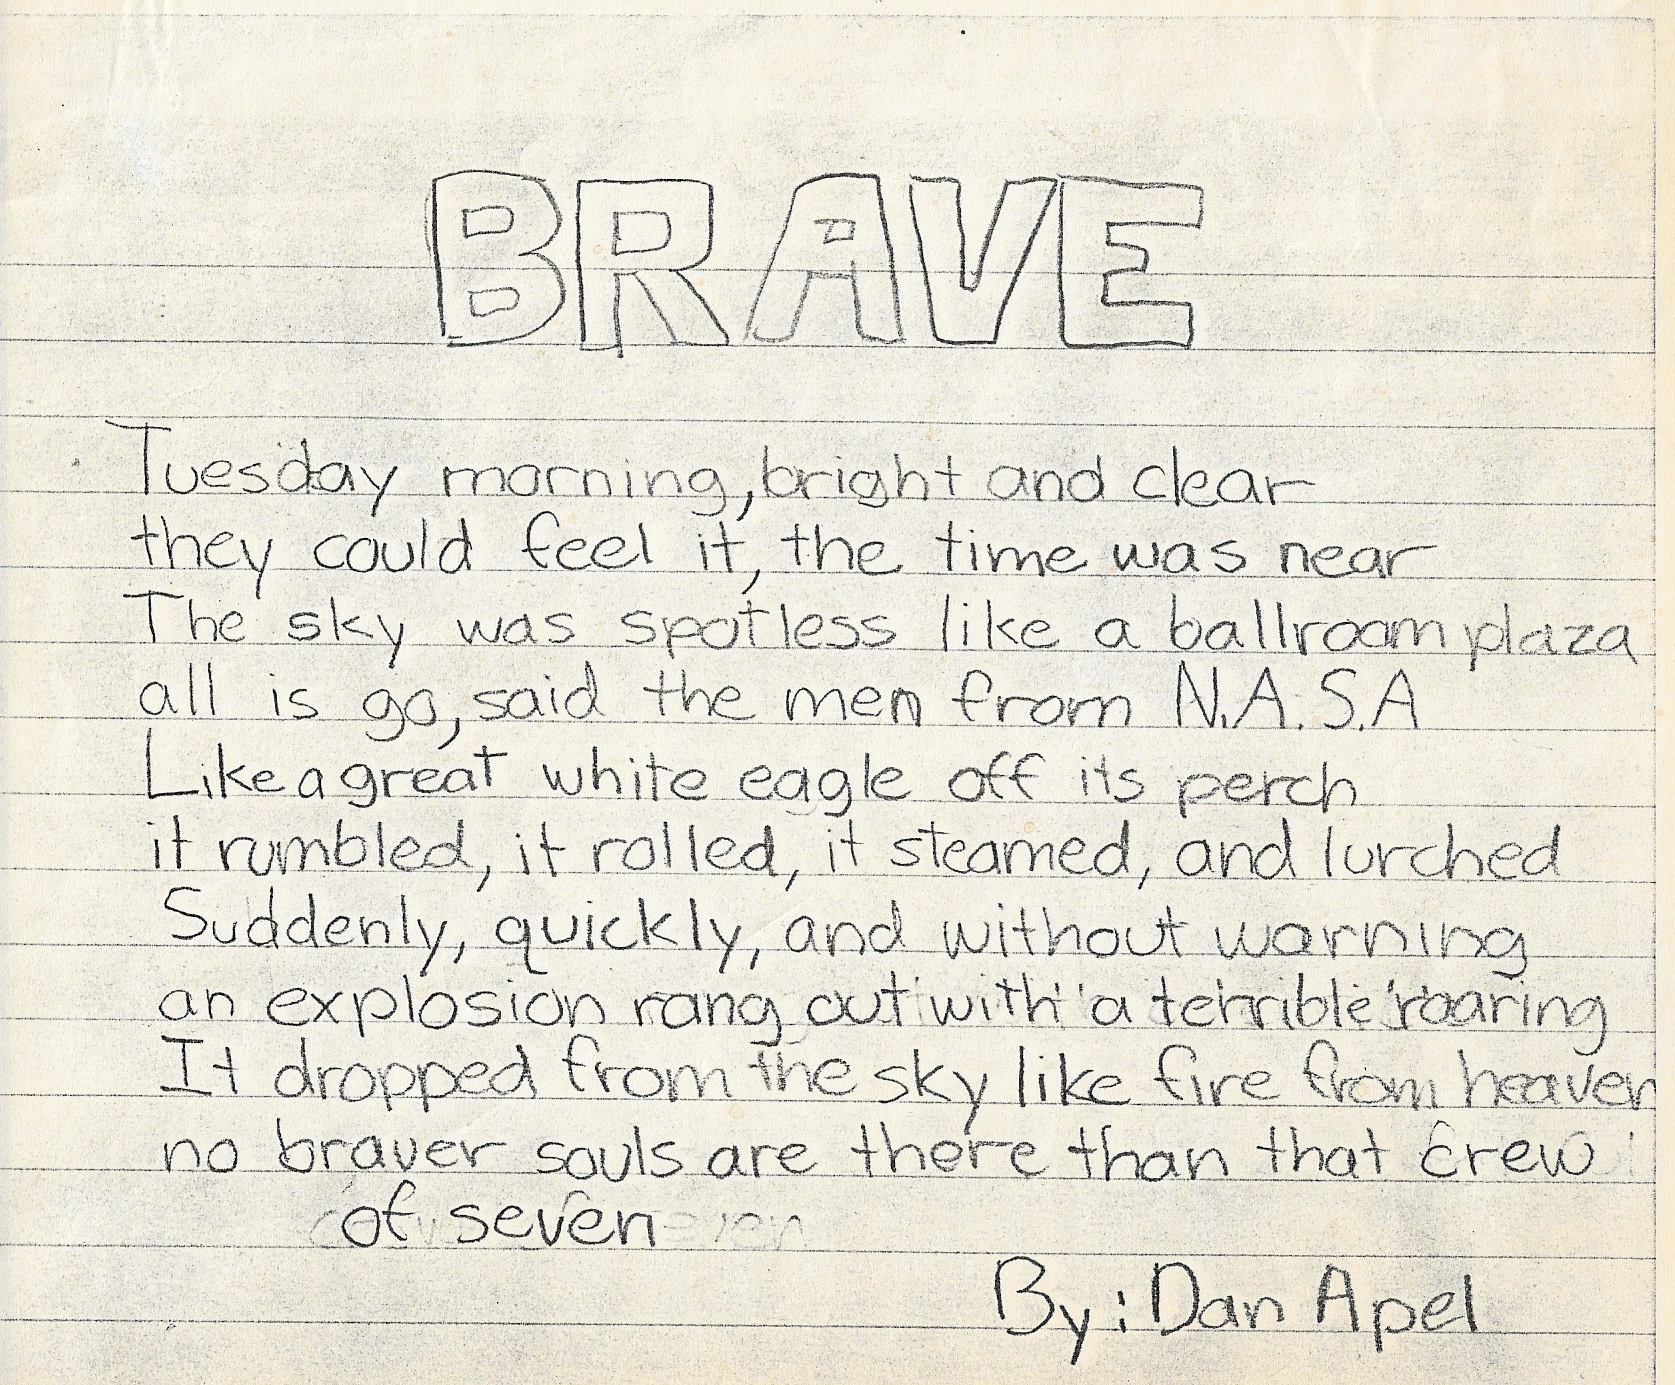 BRAVE
Tuesday morning, bright and clear
they could feel it, the time was near
The sky was spotless like a ballroom plaza
all is go, said the men from N.A.S.A
Like a great white eagle off its perch
it rumbled, it rolled, it steamed, and lurched
Suddenly, quickly, and without warning
an explosion rang out with a terrible roaring
It dropped from the sky like fire from heaven
no braver souls are there than that crew
of seven
By: Dan Apel